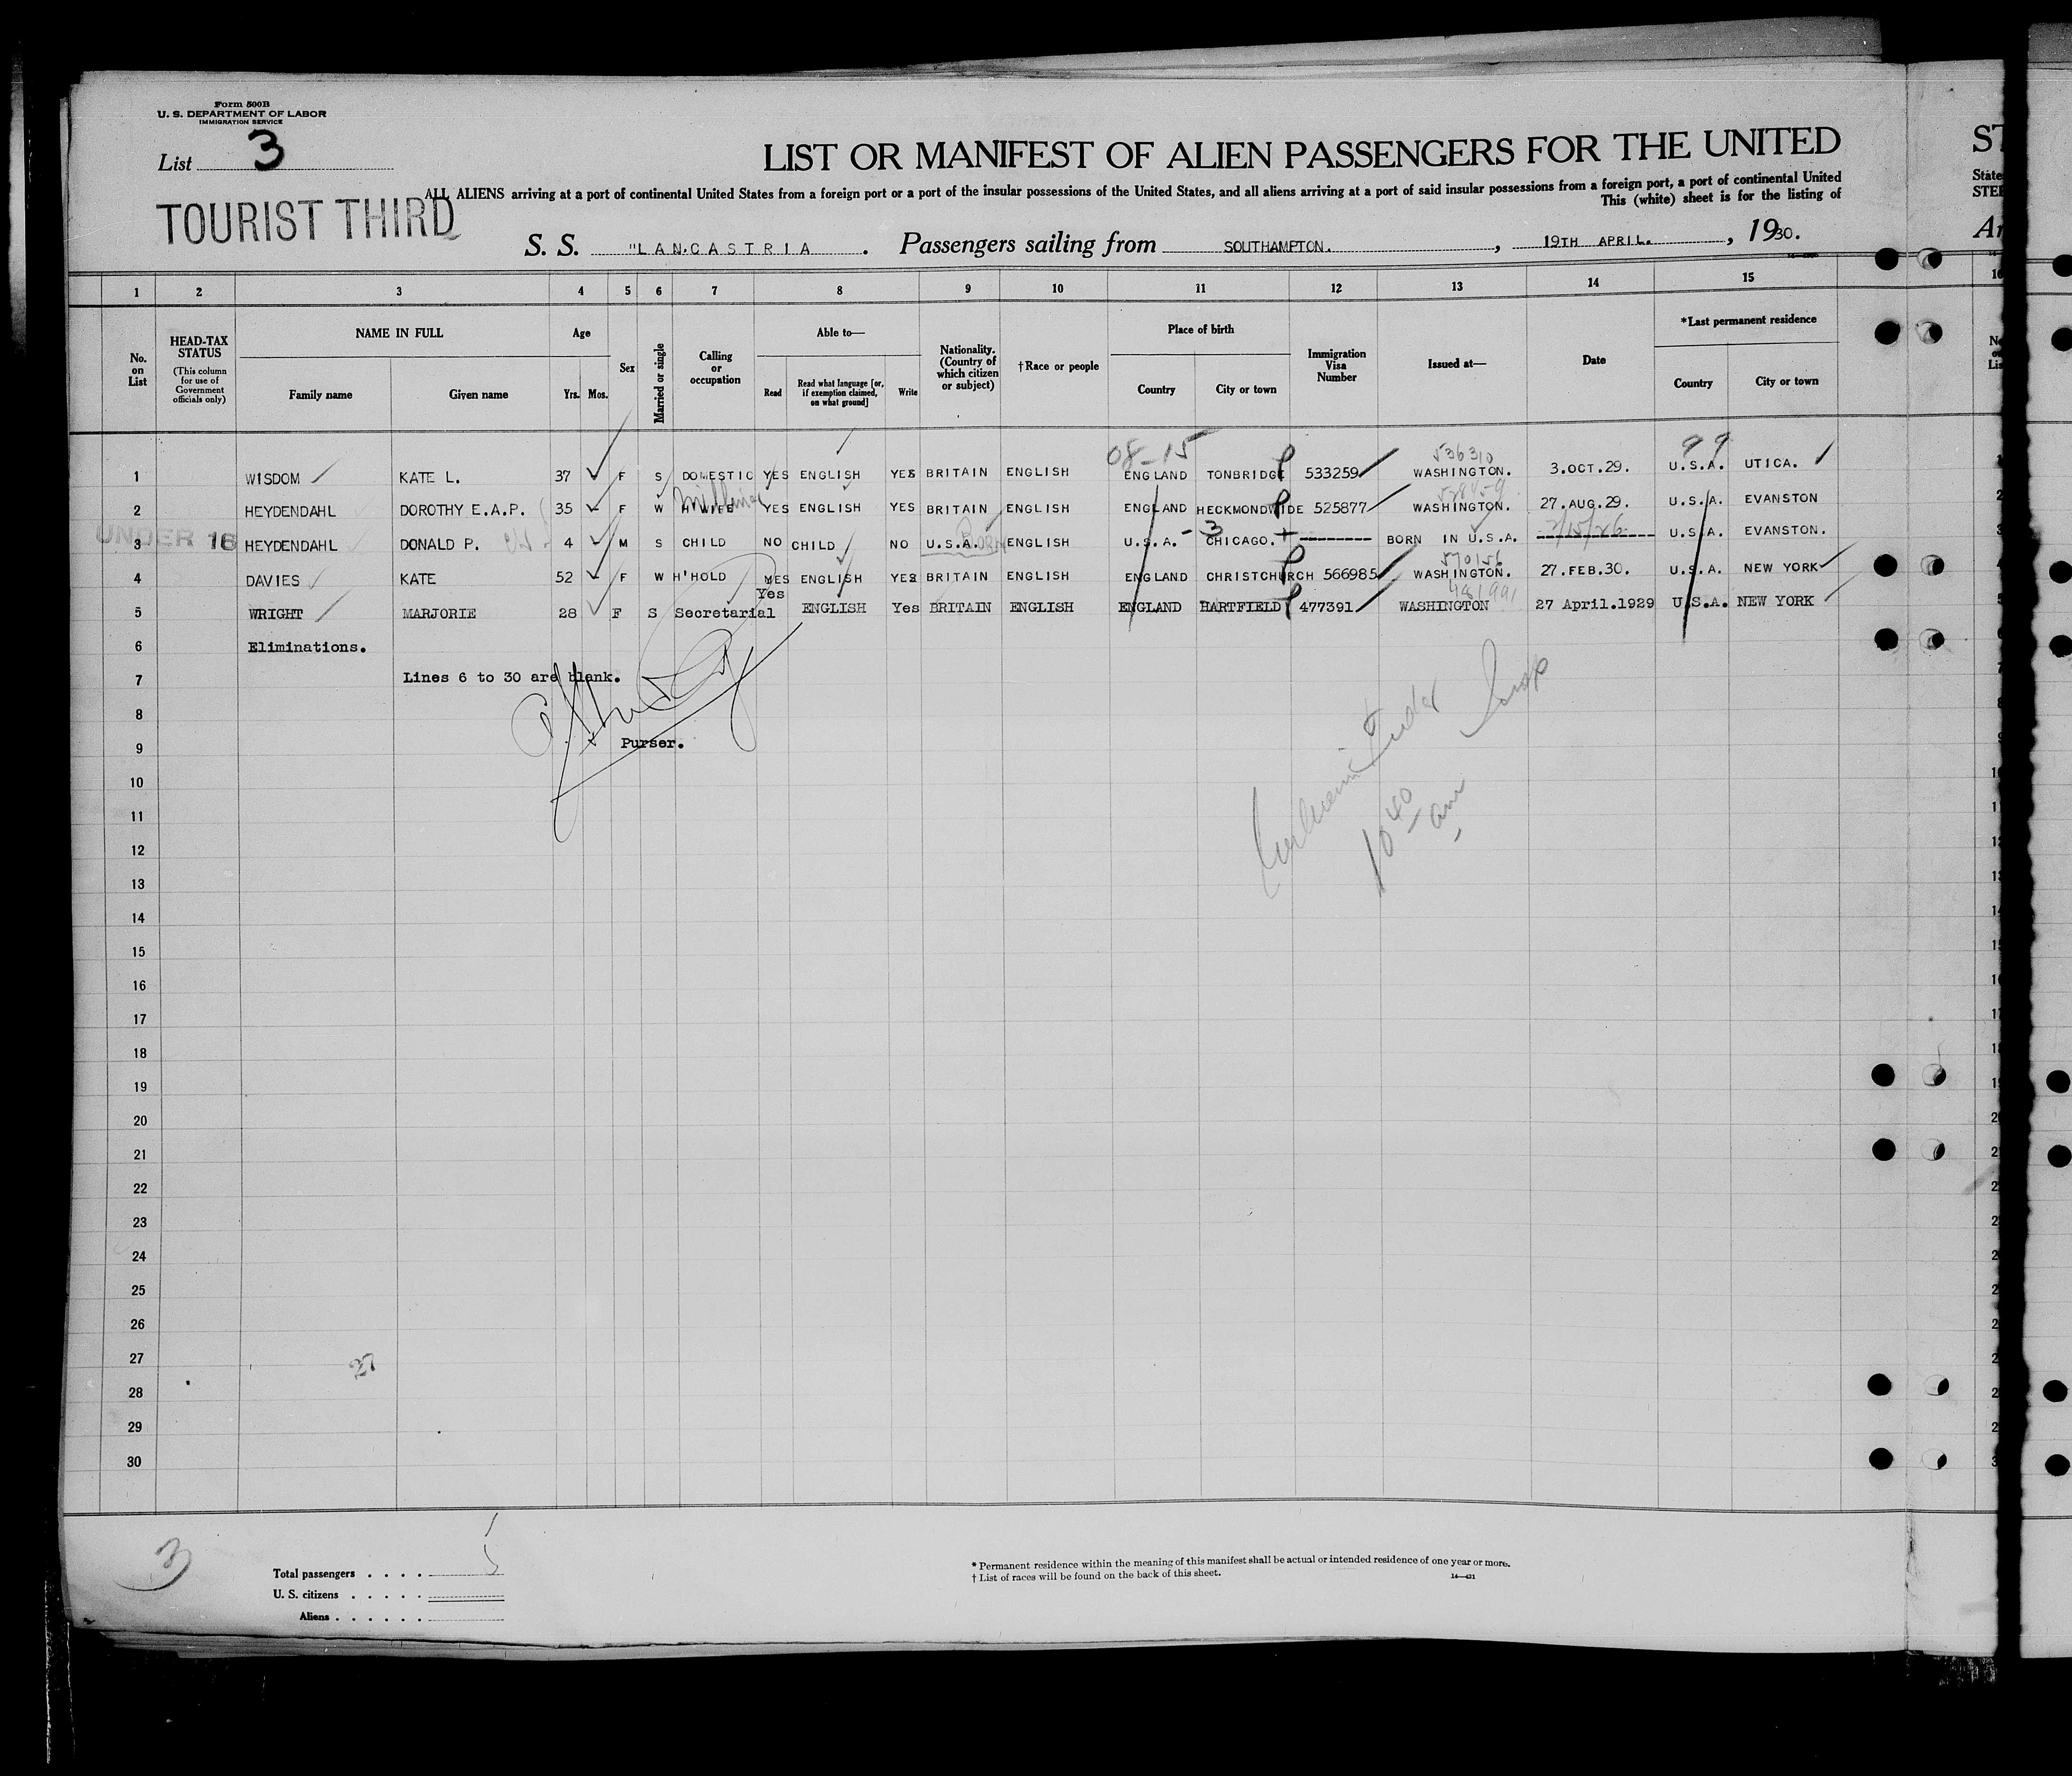 Form 500B
U. S. DEPARTMENT OF LABOR
IMMIGRATION SERVICE
List 3
LIST OR MANIFEST OF ALIEN PASSENGERS FOR THE UNITED
ST
ALL ALIENS arriving at a port of continental United States from a foreign port or a port of the insular possessions of the United States, and all aliens arriving at a port of said insular possessions from a foreign port, a port of continental United
State
This (white) sheet is for the listing of
STEE
TOURIST THIRD
S. S. "LANCASTRIA. Passengers sailing from SOUTHAMPTON., 19TH APRIL., 1930.
Ar
1 2 3 4 5 6 7 8 9 10 11 12 13 14 15 16
No. on List
HEAD-TAX STATUS
(This column for use of Government officials only)
NAME IN FULL
Family name Given name
Age
Yrs. Mos.
Sex
Married or single
Calling or occupation
Able to—
Read
Read what language [or, if exemption claimed, on what ground]
Write
Nationality. (Country of which citizen or subject)
†Race or people
Place of birth
Country City or town
Immigration Visa Number
Issued at—
Date
*Last permanent residence
Country City or town
08-15 536310 99
1 WISDOM KATE L. 37 F S DOMESTIC YES ENGLISH YES BRITAIN ENGLISH ENGLAND TONBRIDGE 533259 WASHINGTON. 3.OCT.29. U.S.A. UTICA.
Milliner
2 HEYDENDAHL DOROTHY E.A.P. 35 F W H'WIFE YES ENGLISH YES BRITAIN ENGLISH ENGLAND HECKMONDWIDE 525877 WASHINGTON. 27.AUG.29. U.S.A. EVANSTON
UNDER 16
3 HEYDENDAHL DONALD P. 4 M S CHILD NO CHILD NO U.S.A. Born ENGLISH U.S.A. - 3 CHICAGO. + --------- BORN IN U.S.A. 2/15/26 U.S.A. EVANSTON.
570156
4 DAVIES KATE 52 F W H'HOLD YES ENGLISH YES BRITAIN ENGLISH ENGLAND CHRISTCHURCH 566985 WASHINGTON. 27.FEB.30. U.S.A. NEW YORK
481991
5 WRIGHT MARJORIE 28 F S Secretarial Yes ENGLISH Yes BRITAIN ENGLISH ENGLAND HARTFIELD 477391 WASHINGTON 27 April.1929 U.S.A. NEW YORK
6 Eliminations.
7 Lines 6 to 30 are blank.
8
9 Purser.
10
10 40 am
11
12
13
14
15
16
17
18
19
20
21
22
23
24
25
26
27
28
29
30
3
Total passengers . . . . 5
U. S. citizens . . . . .
Aliens . . . . . .
* Permanent residence within the meaning of this manifest shall be actual or intended residence of one year or more.
† List of races will be found on the back of this sheet.
14—421